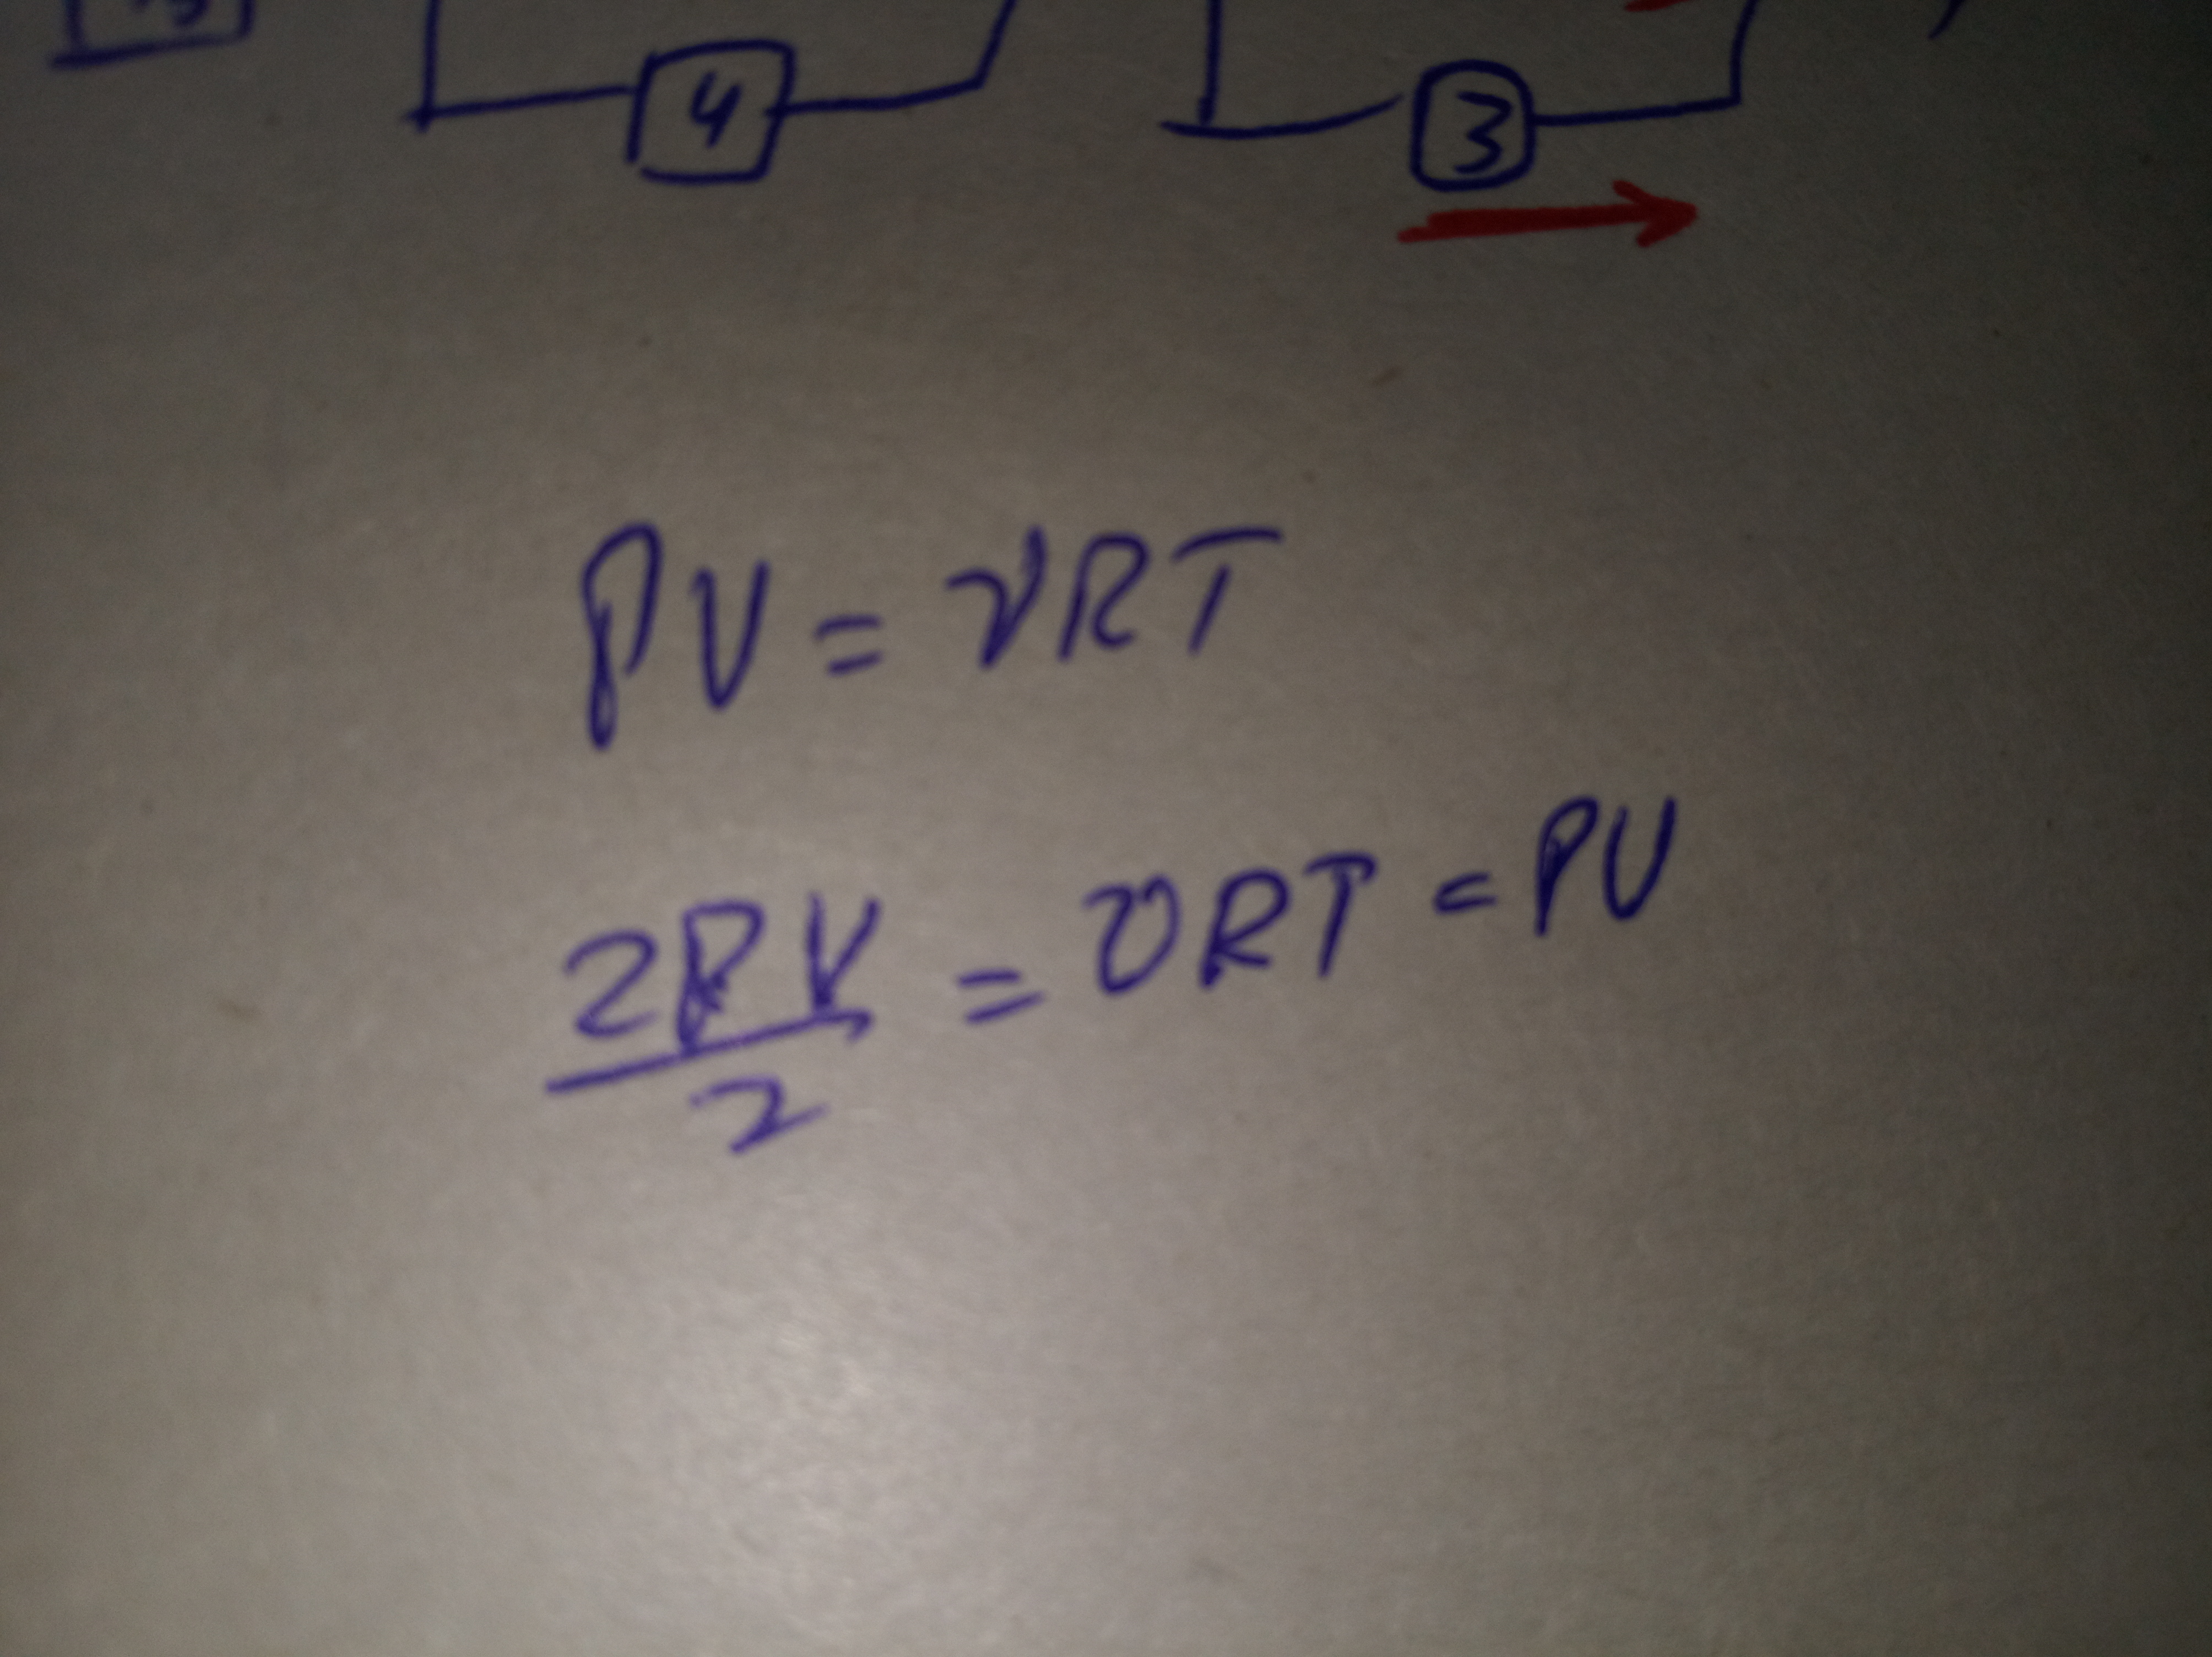 4 3
PV = νRT
2PV/2 = νRT = PV